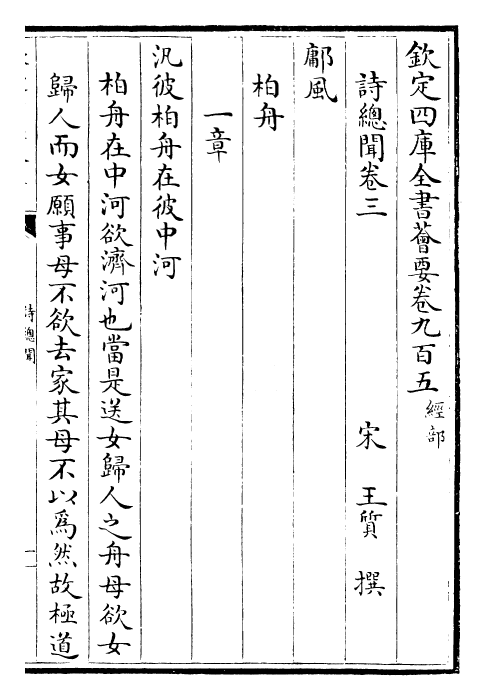 欽定四庫全書薈要卷九百五 經部
詩總聞卷三 宋 王質 撰
鄘風
柏舟
一章
汎彼柏舟在彼中河
柏舟在中河欲濟河也當是送女歸人之舟母欲女
歸人而女願事母不欲去家其母不以為然故極道
詩總聞
一